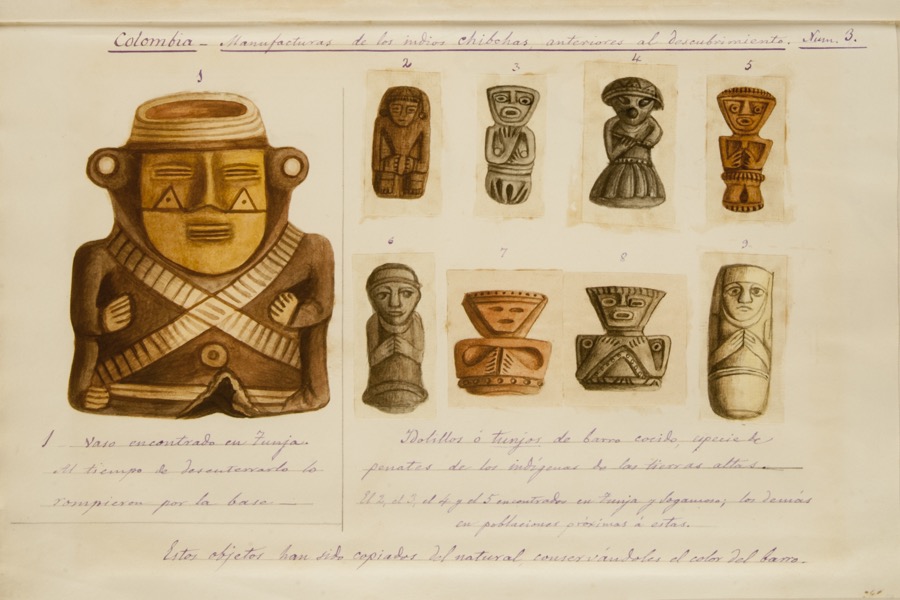 Colombia - Manufacturas de los indios chibchas anteriores al descubrimiento. Num. 3.
1
2
3
4
5
6
7
8
9.
1 Vaso encontrado en Tunja.
Al tiempo de desenterrarlo lo
rompieron por la base
Idolillos ó tunjos de barro cocido, especie de
penates de los indígenas de las tierras altas.
El 2, el 3, el 4 y el 5 encontrados en Tunja y Sogamoso; los demás
en poblaciones próximas á estas.
Estos objetos han sido copiados del natural conservándoles el color del barro.